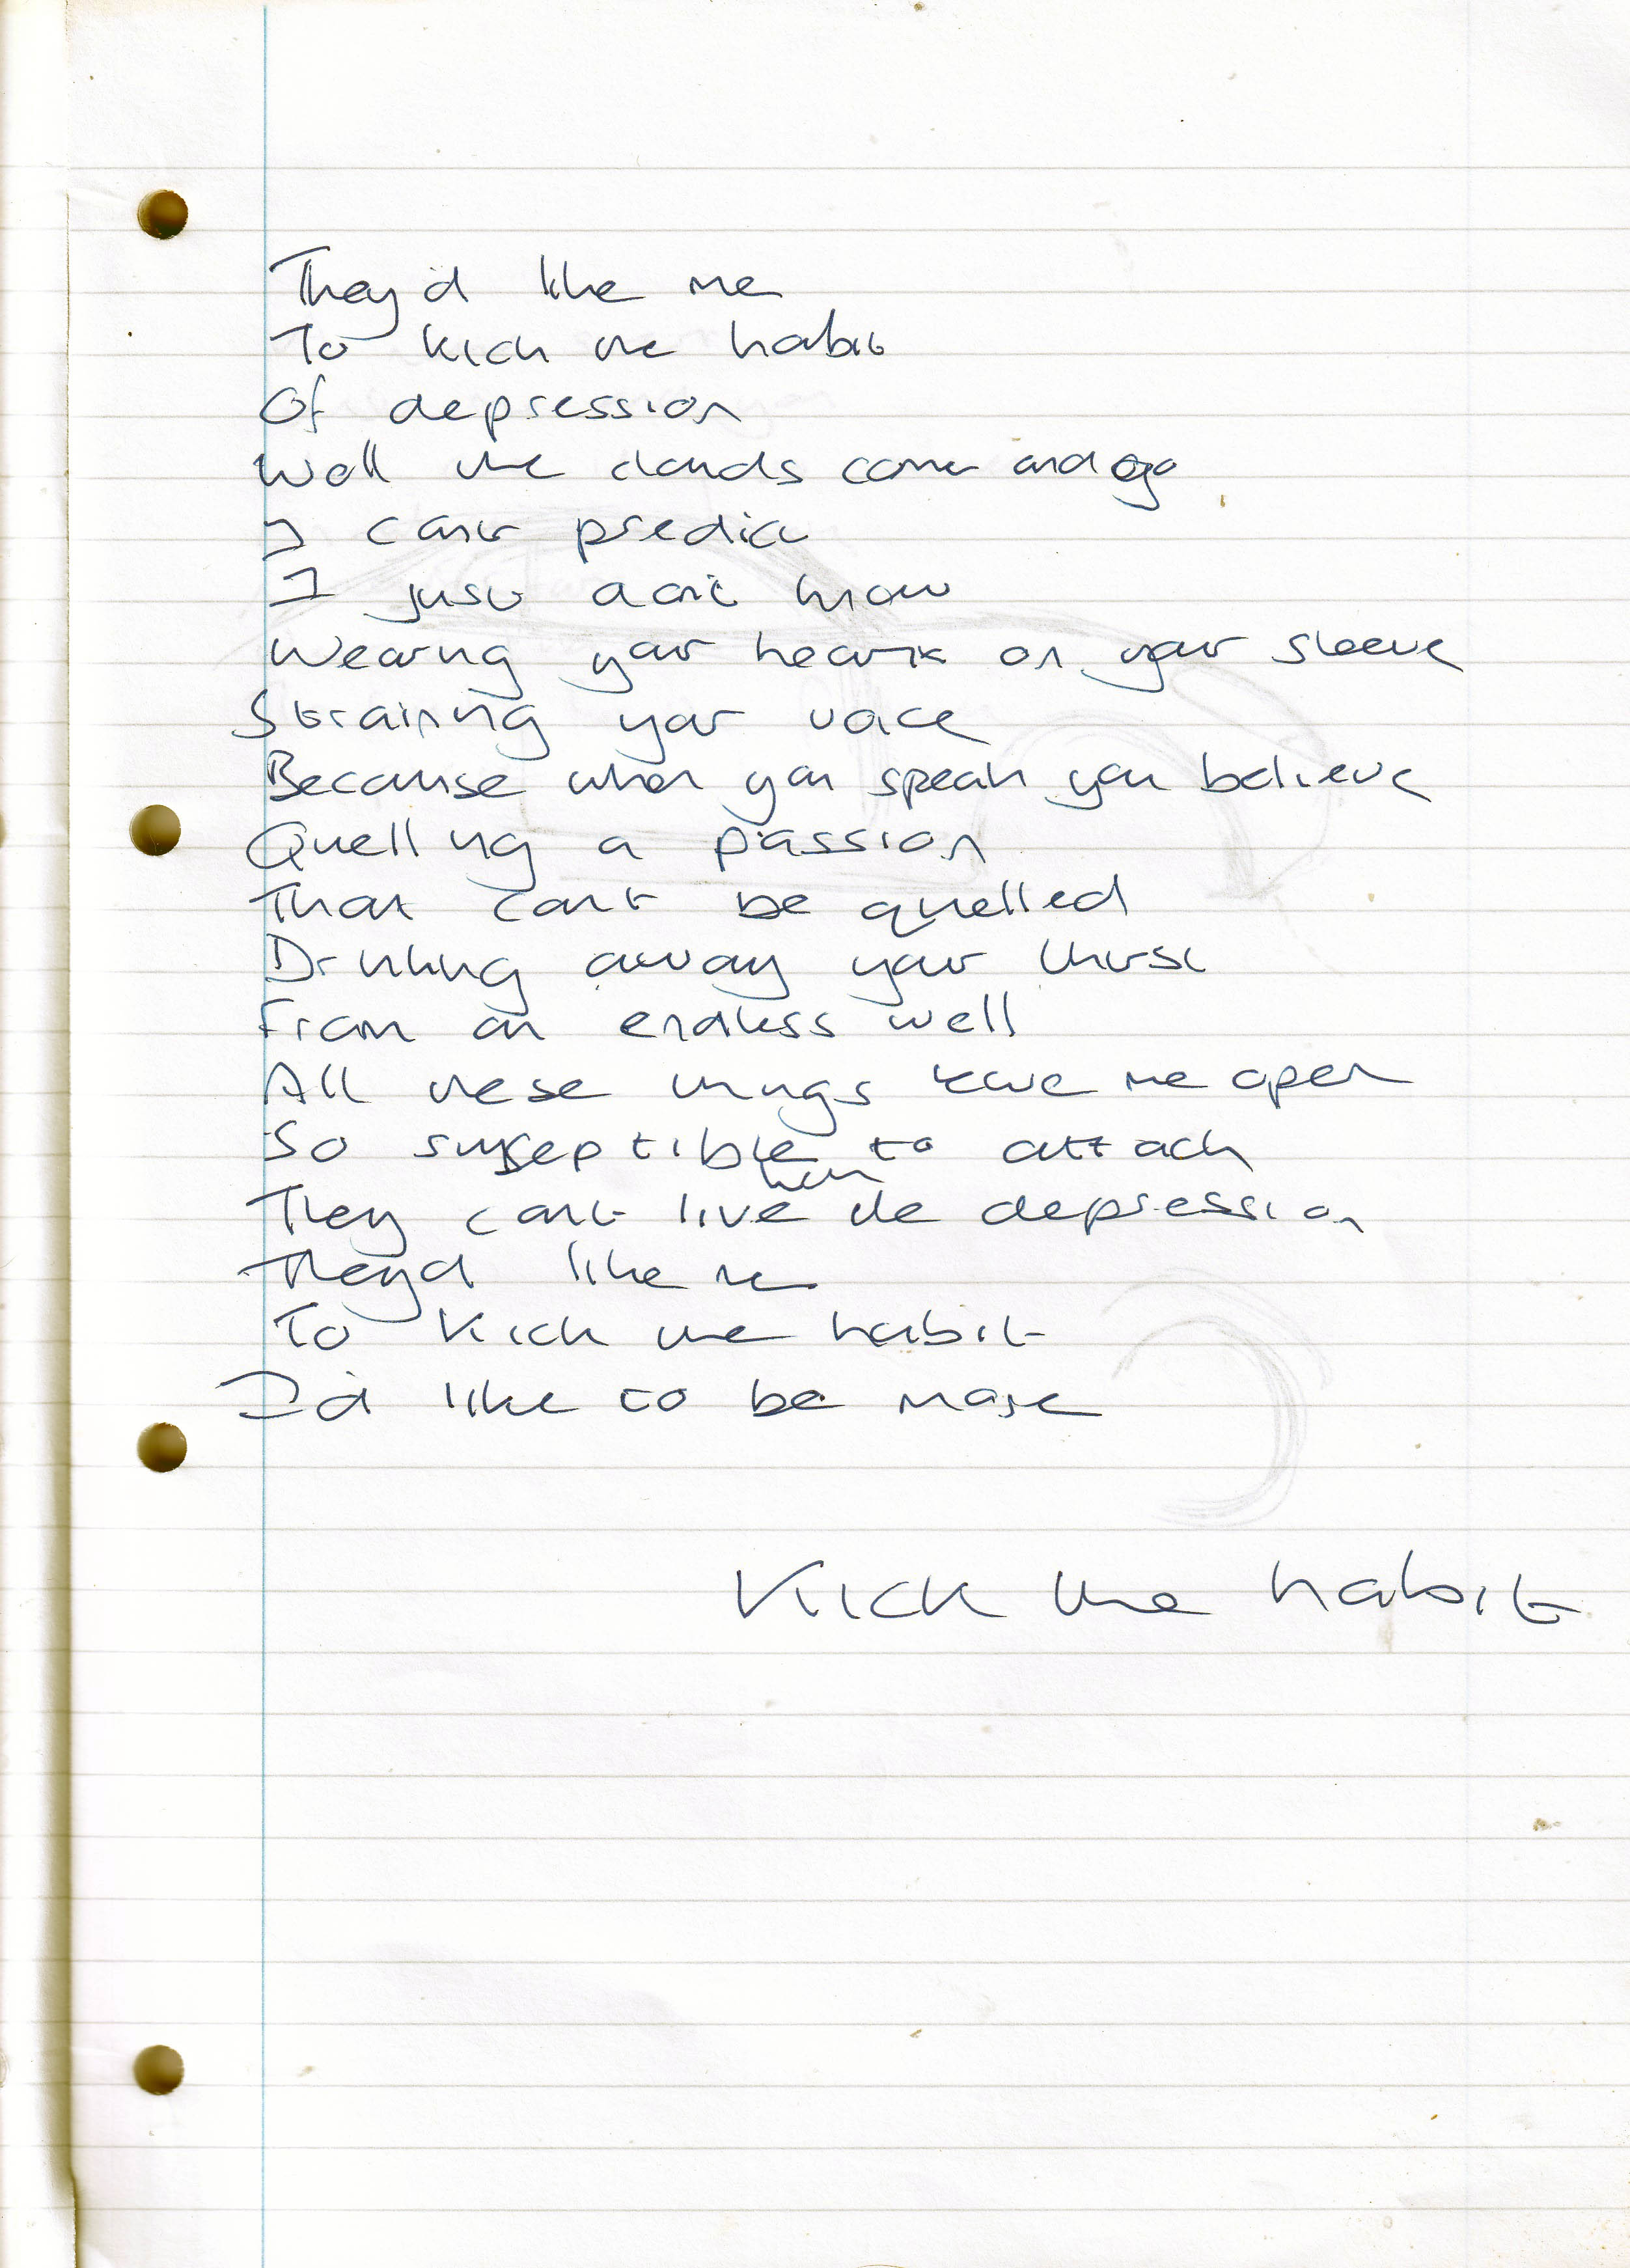 They'd like me
To kick the habit
Of depression
Well the clouds come and go
I cant predict
I just dont know
Wearing your heart on your sleeve
Straining your voice
Because when you speak you believe
Quelling a passion
That cant be quelled
Drinking away your thirst
From an endless well
All these things leave me open
So suseptible to attack
They cant live the depression
Theyd like me
To kick the habit
I'd like to be more
Kick the habit